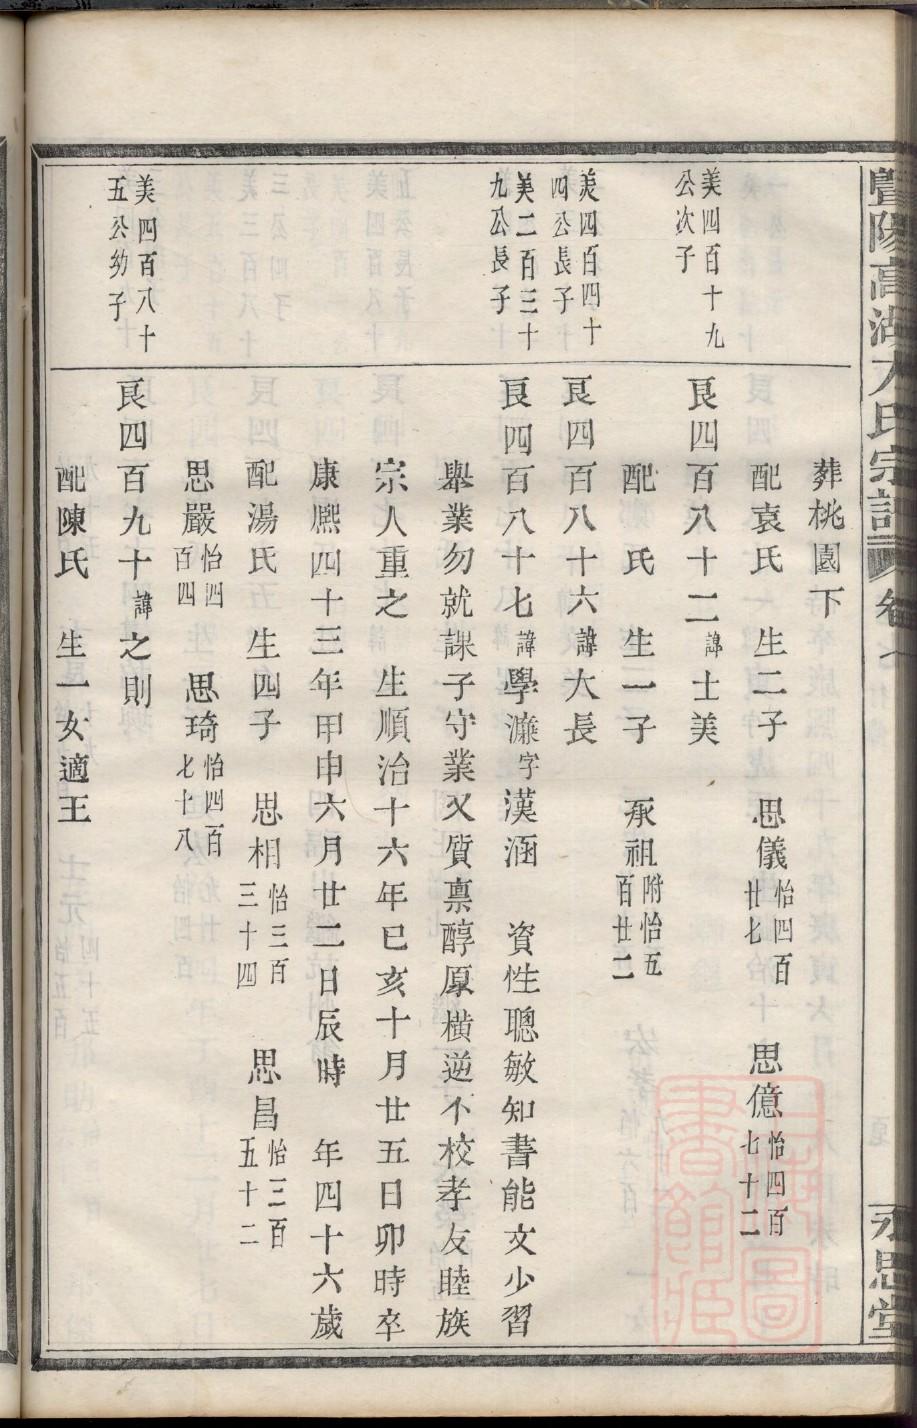 暨陽高湖人氏宗譜 卷七 永思堂
葬桃園下
配袁氏 生二子 思儀怡四百廿七 思億怡四百七十二
美四百十九公次子
良四百八十二諱士美
配 氏 生一子 承祖附怡五百廿二
美四百四十四公長子
良四百八十六諱大長
美二百三十九公長子
良四百八十七諱學濂字漢涵 資性聰敏知書能文少習
舉業勿就課子守業又質禀醇厚橫逆不校孝友睦族
宗人重之 生順治十六年巳亥十月廿五日卯時卒
康熙四十三年甲申六月廿二日辰時 年四十六歲
配湯氏 生四子 思相怡三百三十四 思昌怡三百五十二
思嚴怡四百四 思琦怡四百七十八
美四百八十五公幼子
良四百九十諱之則
配陳氏 生一女適王